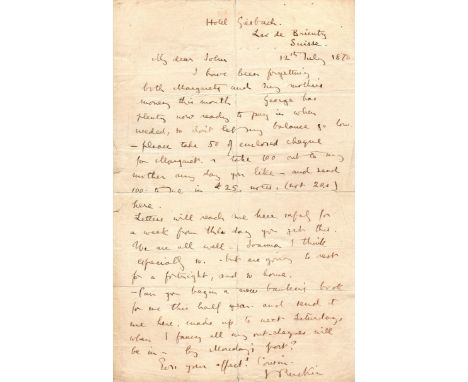 Hotel Giesbach.
Lac de Brientz
Suisse.
My dear John 12th July 1870
I have been forgetting
both Margarets and my mothers
money this month. George has
plenty now ready to pay in when
needed, so don't let my balance go low
- please take 50 of enclosed cheque
for Margaret. & take 100 out to my
mother any day you like - and send
100 to me in £25 notes. (not 20s)
here.
Letters will reach me here safely for
a week from the day you get this.
We are all well. Joanna I think
especially so - but are going to rest
for a fortnight, and so home.
- Can you begin a new bankers book
for me this half year. and send it
me here, made up to next Saturday
when I fancy all my out-drawings will
be in - by Monday's post?
Ever your affect. Cousin
J Ruskin